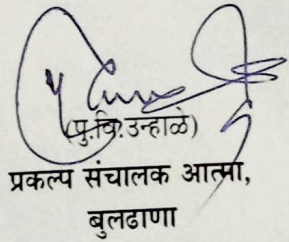 (पु.वि.उन्हाळे)
प्रकल्प संचालक आत्मा,
बुलढाणा